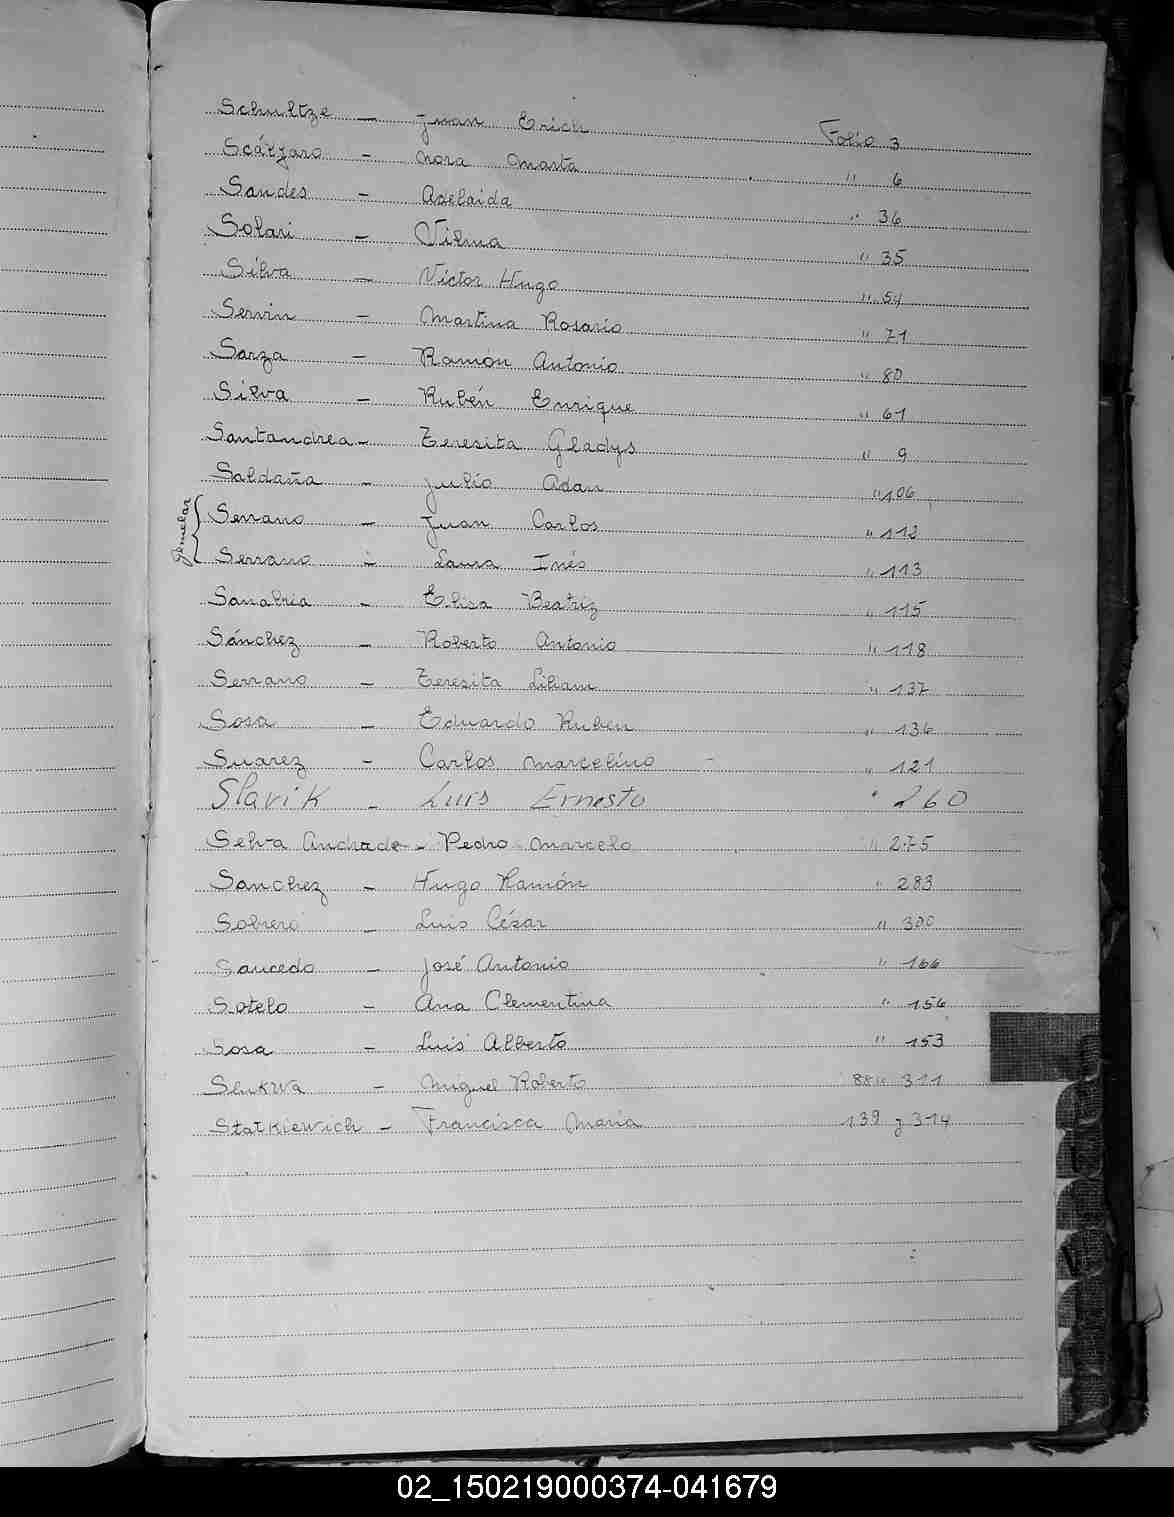 Schultze - Juan Erich Folio 3
- Nora Marta " 6
Sandes - Adelaida " 36
Solari - Vilma " 35
Silva - Víctor Hugo " 54
Servin - Martina Rosario " 71
Sarza - Ramón Antonio " 80
Silva - Rubén Enrique " 61
Santandrea - Teresita Gladys " 9
Saldaña - Julio Adan " 106
Serrano - Juan Carlos " 112
Serrano - Laura Inés " 113
Sanabria - Elisa Beatriz " 115
Sánchez - Roberto Antonio " 118
Serrano - Teresita Liliam " 137
Sosa - Eduardo Ruben " 136
Suarez - Carlos Marcelino - " 121
Slavik - Luis Ernesto " 260
Selva Andrade - Pedro Marcelo " 275
Sanchez - Hugo Ramón " 283
Sobrero - Luis César " 300
Saucedo - José Antonio " 166
Sotelo - Ana Clementina " 156
Sosa - Luis Alberto " 153
- Miguel Roberto 88 " 311
Statkiewich - Francisca Maria 139 y 314
02_150219000374-041679